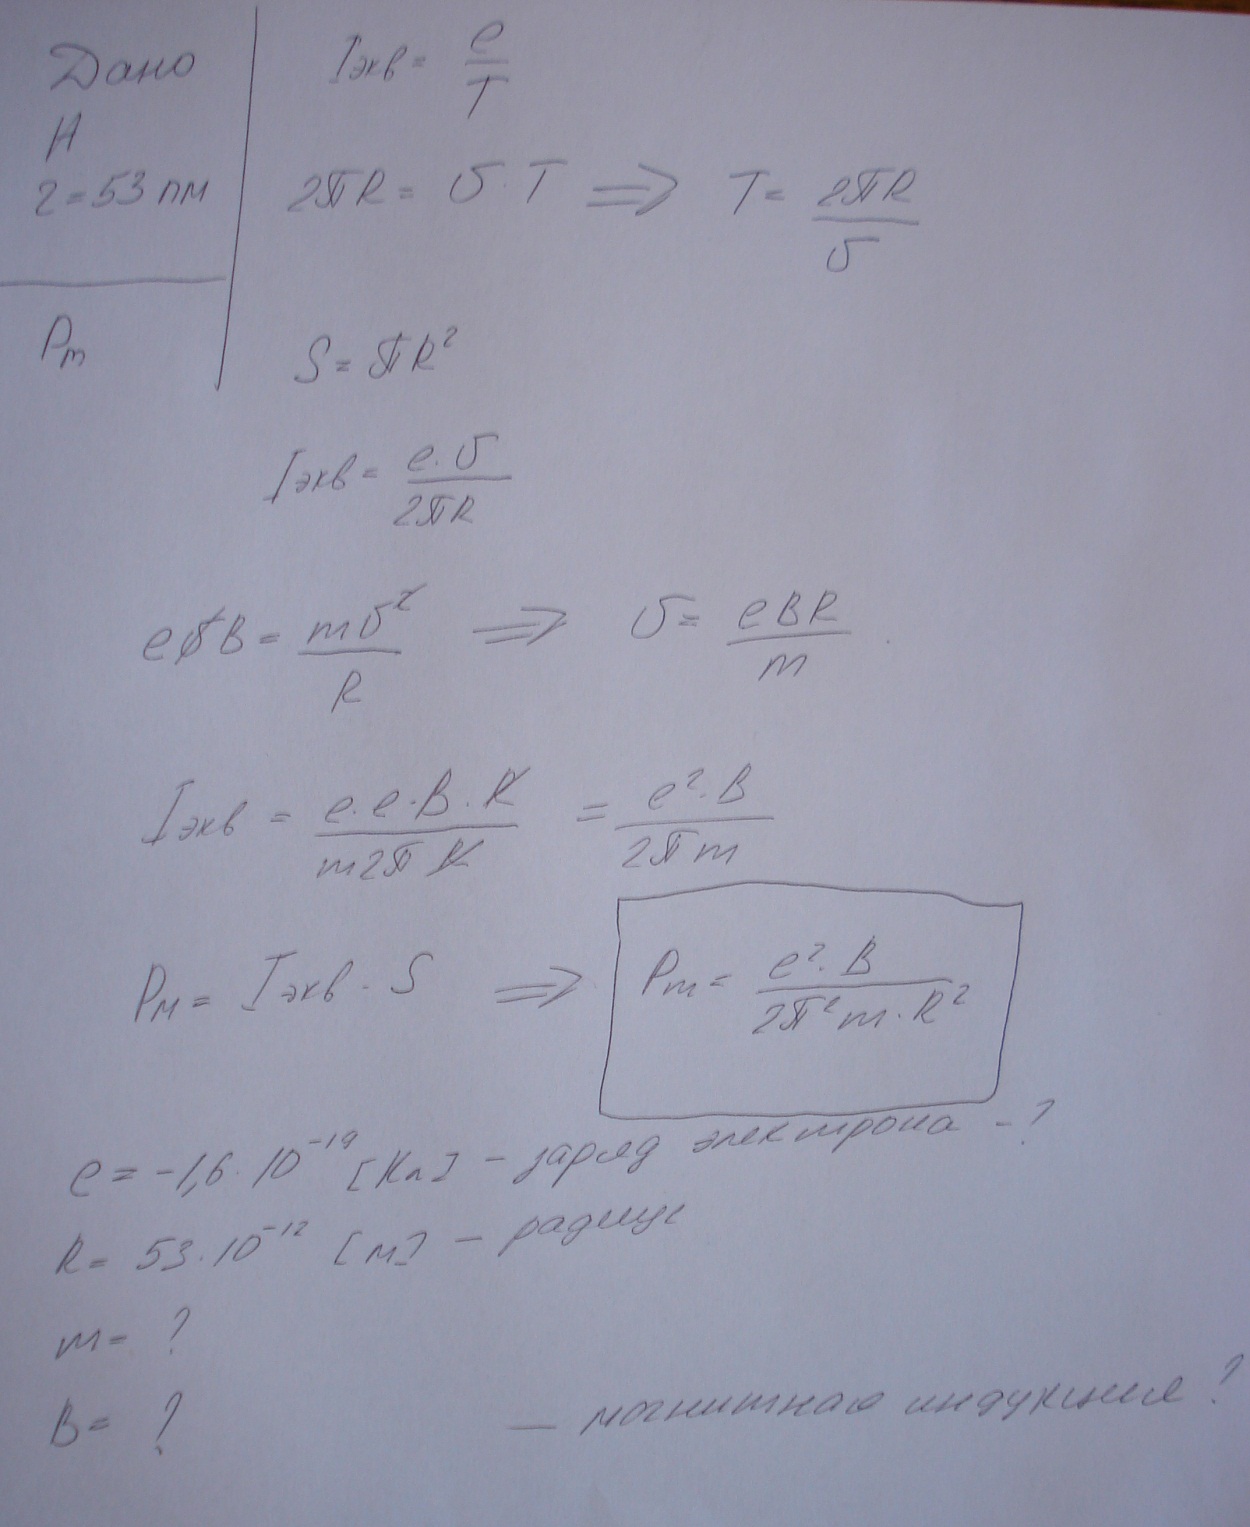 Дано
Iэкв = e/T
H
r = 53 пм
2πR = υ·T ⟹ T = 2πR/υ
Pm
S = πR²
Iэкв = e·υ/2πR
eυB = mυ²/R ⟹ υ = eBR/m
Iэкв = e·e·B·R/m2πR = e²·B/2πm
Pм = Iэкв·S ⟹ Pm = e²·B/2π²m·R²
e = -1,6·10⁻¹⁹ [Кл] – заряд электрона - ?
R = 53·10⁻¹² [м] – радиус
m = ?
B = ? — магнитная индукция ?